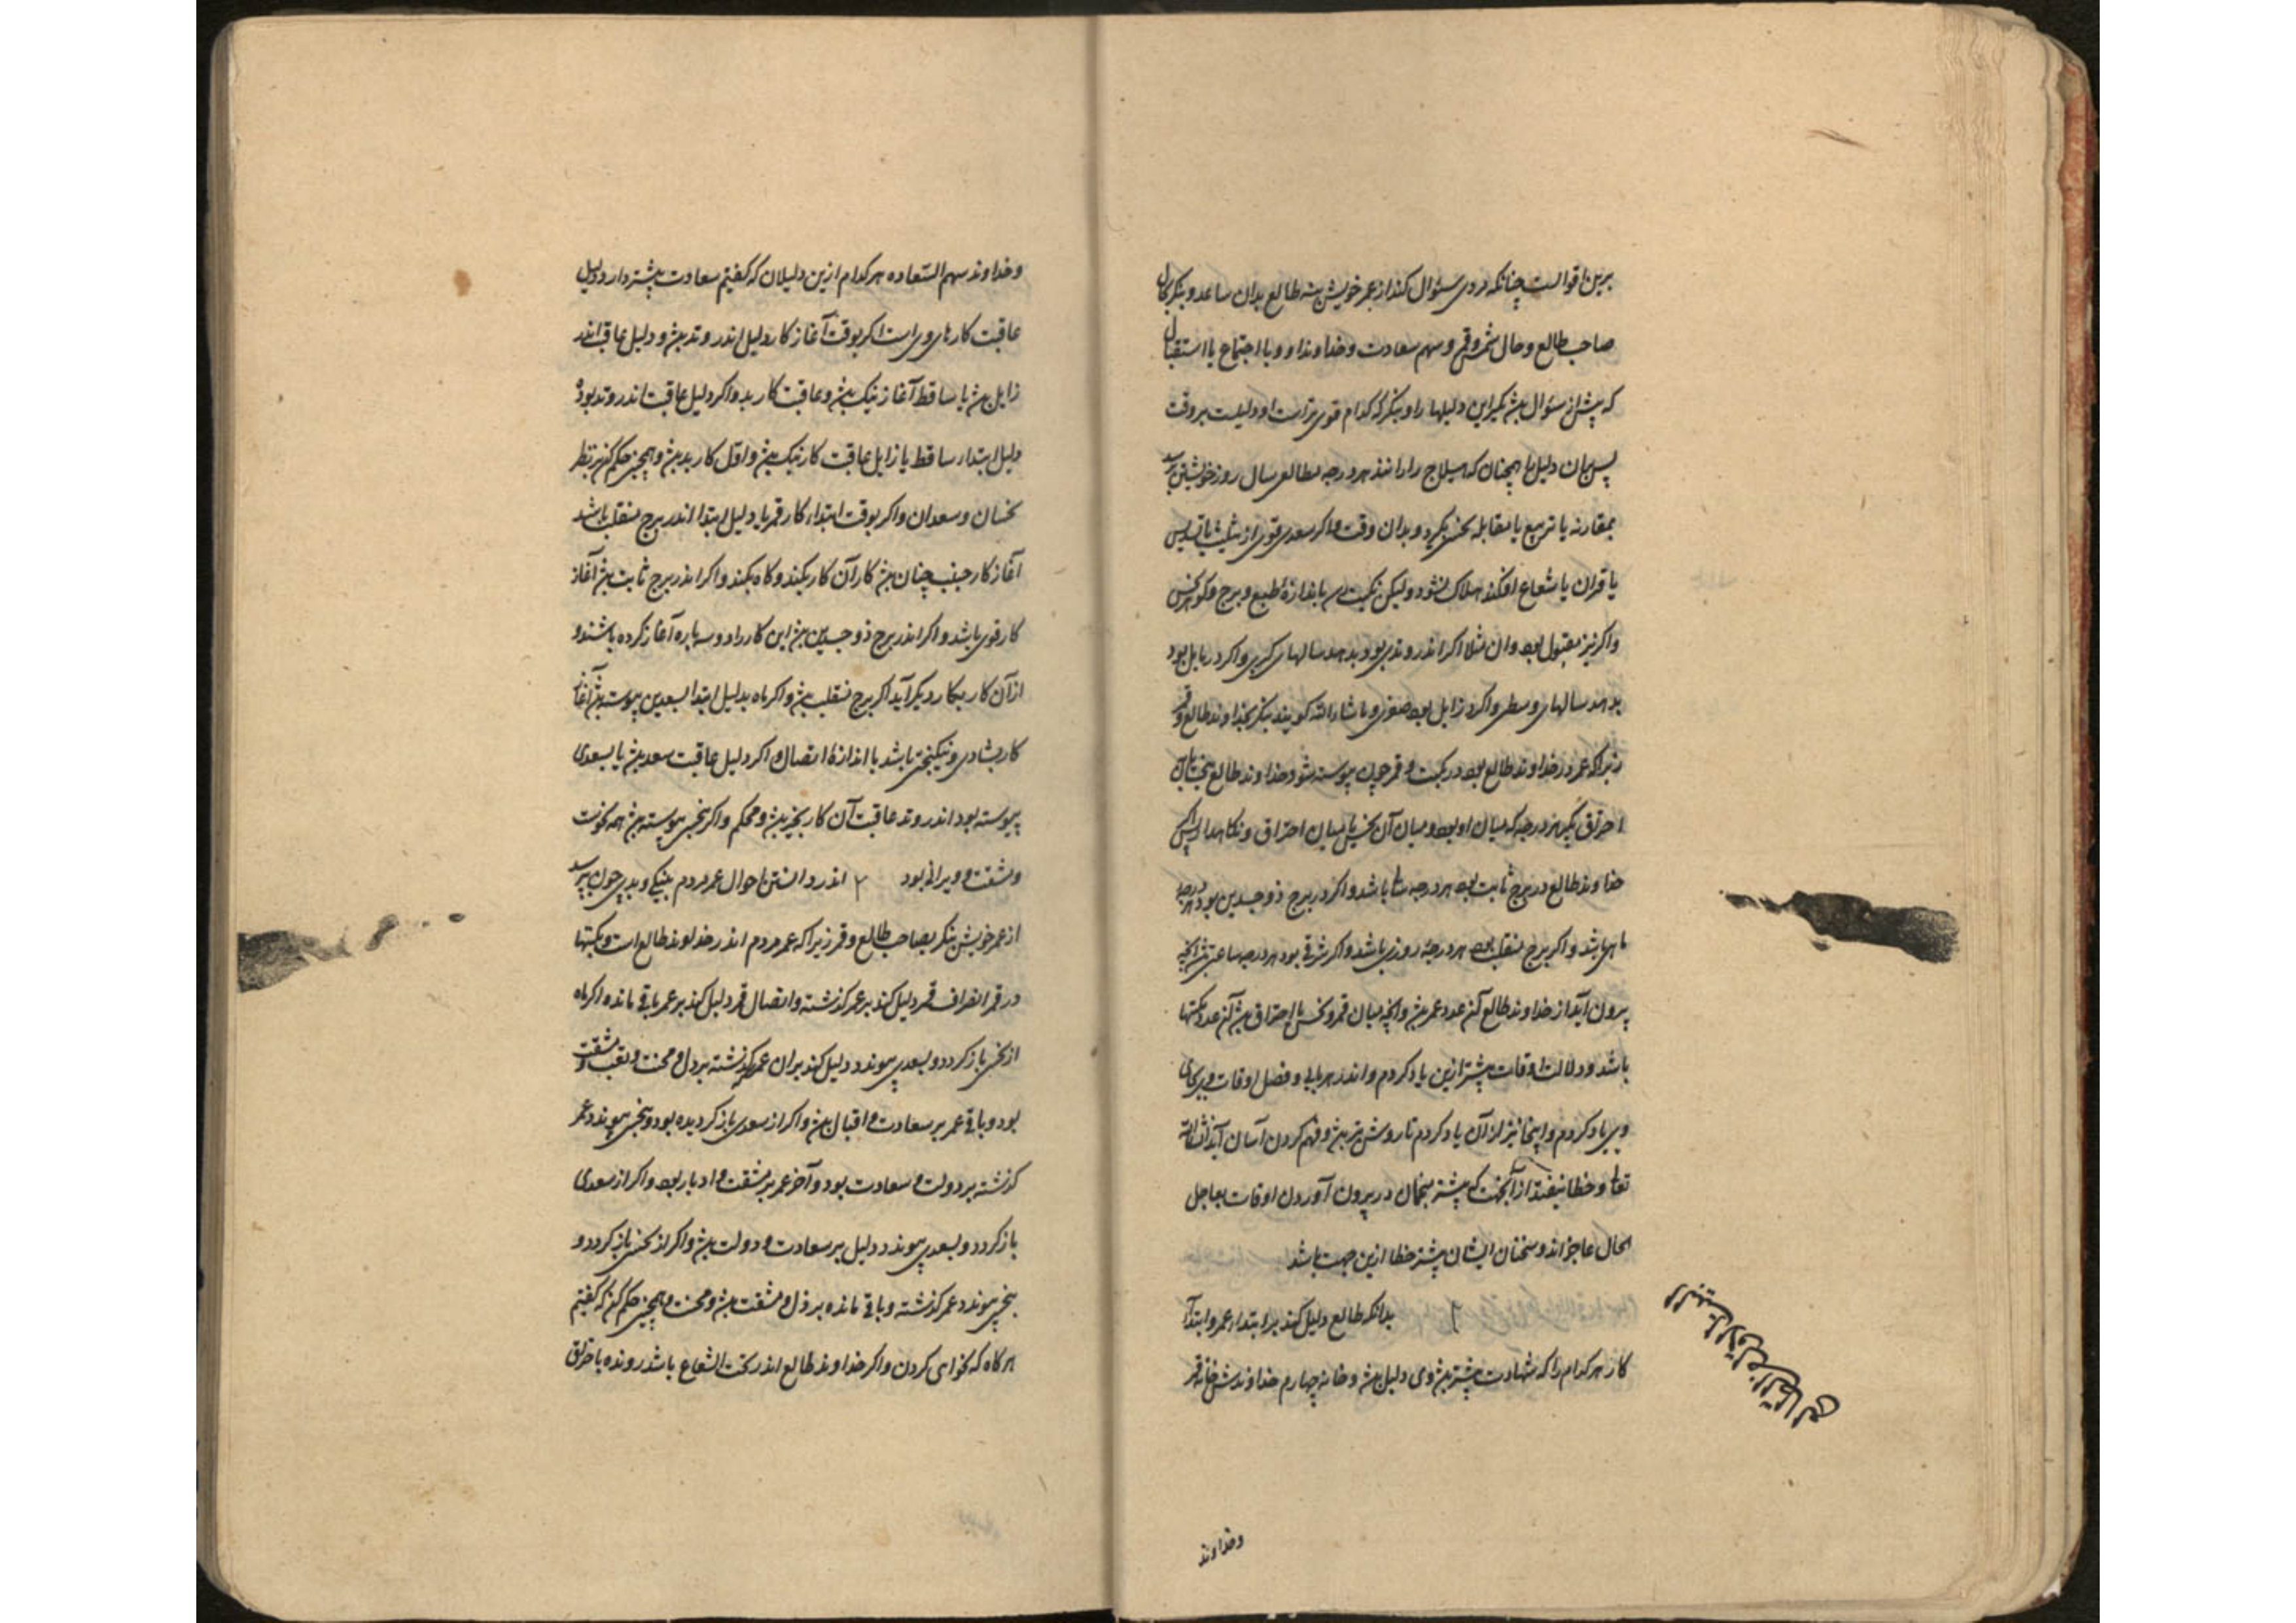 برین اقوالست چنانکه مردی سئوال کند از عمر خویش بنه طالع بدان ساعه و بنگر بحال
صاحب طالع و حال شمس و قمر و سهم سعادت و خداوند او و با اجتماع یا استقبال
که پیش از سئوال بیش بگیر این دلیلها را و بنگر که کدام قوی تراست او دلیلست بر وقت
پس بران دلیل را همچنان که هیلاج را رانند هر درجه مطالعی سال روز خویش
بمقارنه یا تربیع یا مقابله نحس بگیرد و بدان وقت اگر سعدی قوی از تثلیث یا تسدیس
یا قران یا شعاع افکند هلاک نشود ولیکن نکبت رسد باندازهٔ طبع و برج و کوکب نحس
واکر نیز مقبول بود وان مثلا اکر اندر وتدی بود بدهد سالهای کبری واکر در مایل بود
بدهد سالهای وسطی واکر در زایل بود صغری و ماشاءالله کویند بنکر بخداوند طالع و قمر
زیرا که عمر در خداوند طالع بود در نکبت و قمر چون پیوسته شود خداوند طالع بنحس یا
احتراق بگیر هر درجه که میان او بود و میان آن نحس یا میان احتراق و نکاهدار پس اکر
خداوند طالع در برج ثابت بود هر درجه سالی باشد واکر در برج ذوجسدین بود هر درجه
ماهی باشد واکر برج منقلب بود هر درجه روزی باشد واکر شرقی بود هر درجه ساعتی
بیرون آید از خداوند طالع آن عدد عمر بیش وانچه میان قمر و نحس یا احتراق بیش آن عدد نکبتها
باشد و دلالت اوقات پیشتر ازین یاد کردم و اندر هر بابی و فصل اوقات
یاد کردم و اینجا نیز از آن یاد کردم تا روشن تر بیش و فهم کردن آسان آید انشاءالله
تعالی و خطا نیفتد از آنجهت که بیشتر منجمان در بیرون آوردن اوقات بعاجل
الحال عاجزاند و سخنان ایشان بیشتر خطا ازین جهت باشد
۲ بدانکه طالع دلیل کند بر ابتداء عمر و ابتداء
کار هر کدام را که شهادت بیشتر بیش وی دلیل بیش و خانه چهارم خداوندش خانه قمر
وخداوند
وخداوند سهم السّعاده هر کدام ازین دلیلان که کفتیم سعادت بیشتر دارد دلیل
عاقبت کارهای وی است اکر بوقت آغاز کار دلیل اندر وتد بیش و دلیل عاقبت اندر
زایل بیش یا ساقط آغاز نیک بیش و عاقبت کار بد واکر دلیل عاقبت اندر وتد بود و
دلیل ابتداء ساقط یا زایل عاقبت کار نیک بیش و اوّل کار بد بیش و همچنین حکم کن بر نظر
نحسان و سعدان واکر بوقت ابتداء کار قمر یا دلیل ابتدا اندر برج منقلب باشد
آغاز کار چنان بیش کار آن کار بکند و کاه نکند واکر اندر برج ثابت بیش آغاز
کار قوی باشد واکر اندر برج ذوجسدین بیش این کار را دو سه باره آغاز کرده باشند و
ازآن کار بکار دیکر آید اکر برج منقلب بیش واکر ماه بدلیل ابتدا بسعدین پیوسته بیش آغاز
کار بشادی و نیکبختی باشد با اندازهٔ اتصال و اکر دلیل عاقبت سعد بیش یا بسعدی
پیوسته بود اندر وتد عاقبت آن کار بخیر بیش و محکم واکر بنحس پیوسته بیش همه نحوست
و مشقت و ویرانی بود ۲ اندر دانستن احوال عمر مردم بنیکی و بدی چون پرسد
از عمر خویش بنکر بصاحب طالع و قمر زیرا که عمر مردم اندر خداوند طالع است و نکبتها
در قمر انصراف قمر دلیل کند بر عمر گذشته و اتصال قمر دلیل کند بر عمر باقی مانده اکر ماه
از نحس باز کردد و بسعدی پیوندد دلیل کند بران عمر گذشته بر ذل و محنت و تعب و مشقت
بود و باقی عمر بر سعادت و اقبال بیش واکر از سعدی باز کردیده بود و بنحس پیوندد عمر
کذشته بر دولت و سعادت بود و آخر عمر بر مشقت و ادبار بود واکر از سعدی
باز کردد و بسعدی پیوندد دلیل بر سعادت و دولت بیش واکر از نحس باز کردد و
بنحس پیوندد عمر کذشته و باقی مانده بر ذل و مشقت بیش و محنت و همچنین حکم کن که کفتیم
هر کاه که خواهی کردن واکر خداوند طالع اندر تحت الشعاع باشد رونده باحتراق